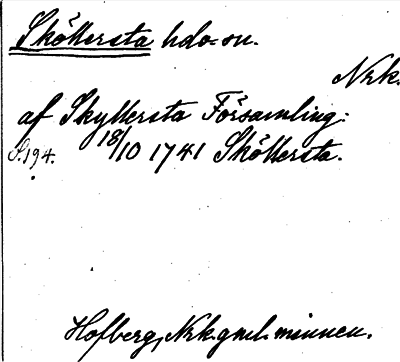 Sköllersta hdo=sn.
Nrk.
af Skyllersta Församling:
S.194. 18/10 1741 Sköllersta.
Hofberg, Nrk. gml. minnen.